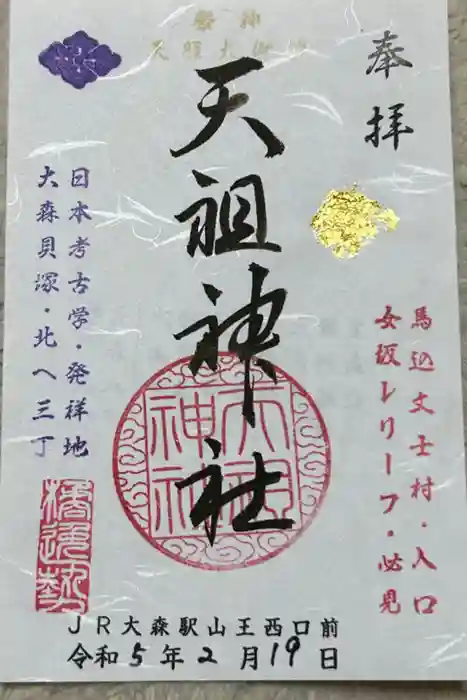 祭神
天照大御神
奉拝
天祖神社
馬込文士村・入口
女坂レリーフ・必見
日本考古学・発祥地
大森貝塚・北へ三丁
天祖神社
JR大森駅山王西口前
令和5年2月19日